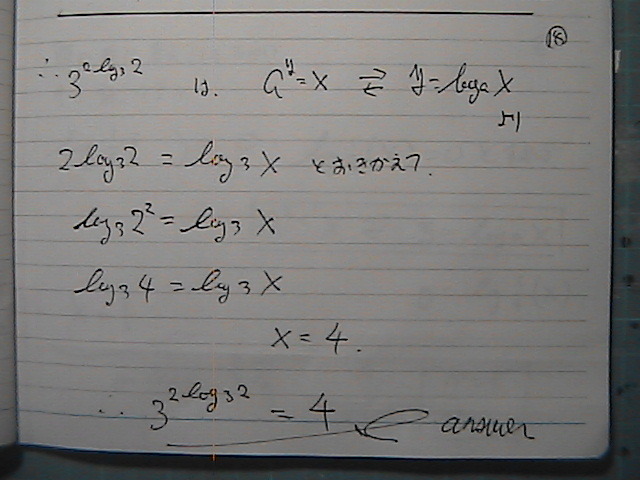 ⑱
∴ 3^{2log₃2} は. a^y = x ⇄ y = logₐ x
より
2log₃2 = log₃ x とおきかえて.
log₃2² = log₃ x
log₃4 = log₃ x
x = 4.
∴ 3^{2log₃2} = 4 answer